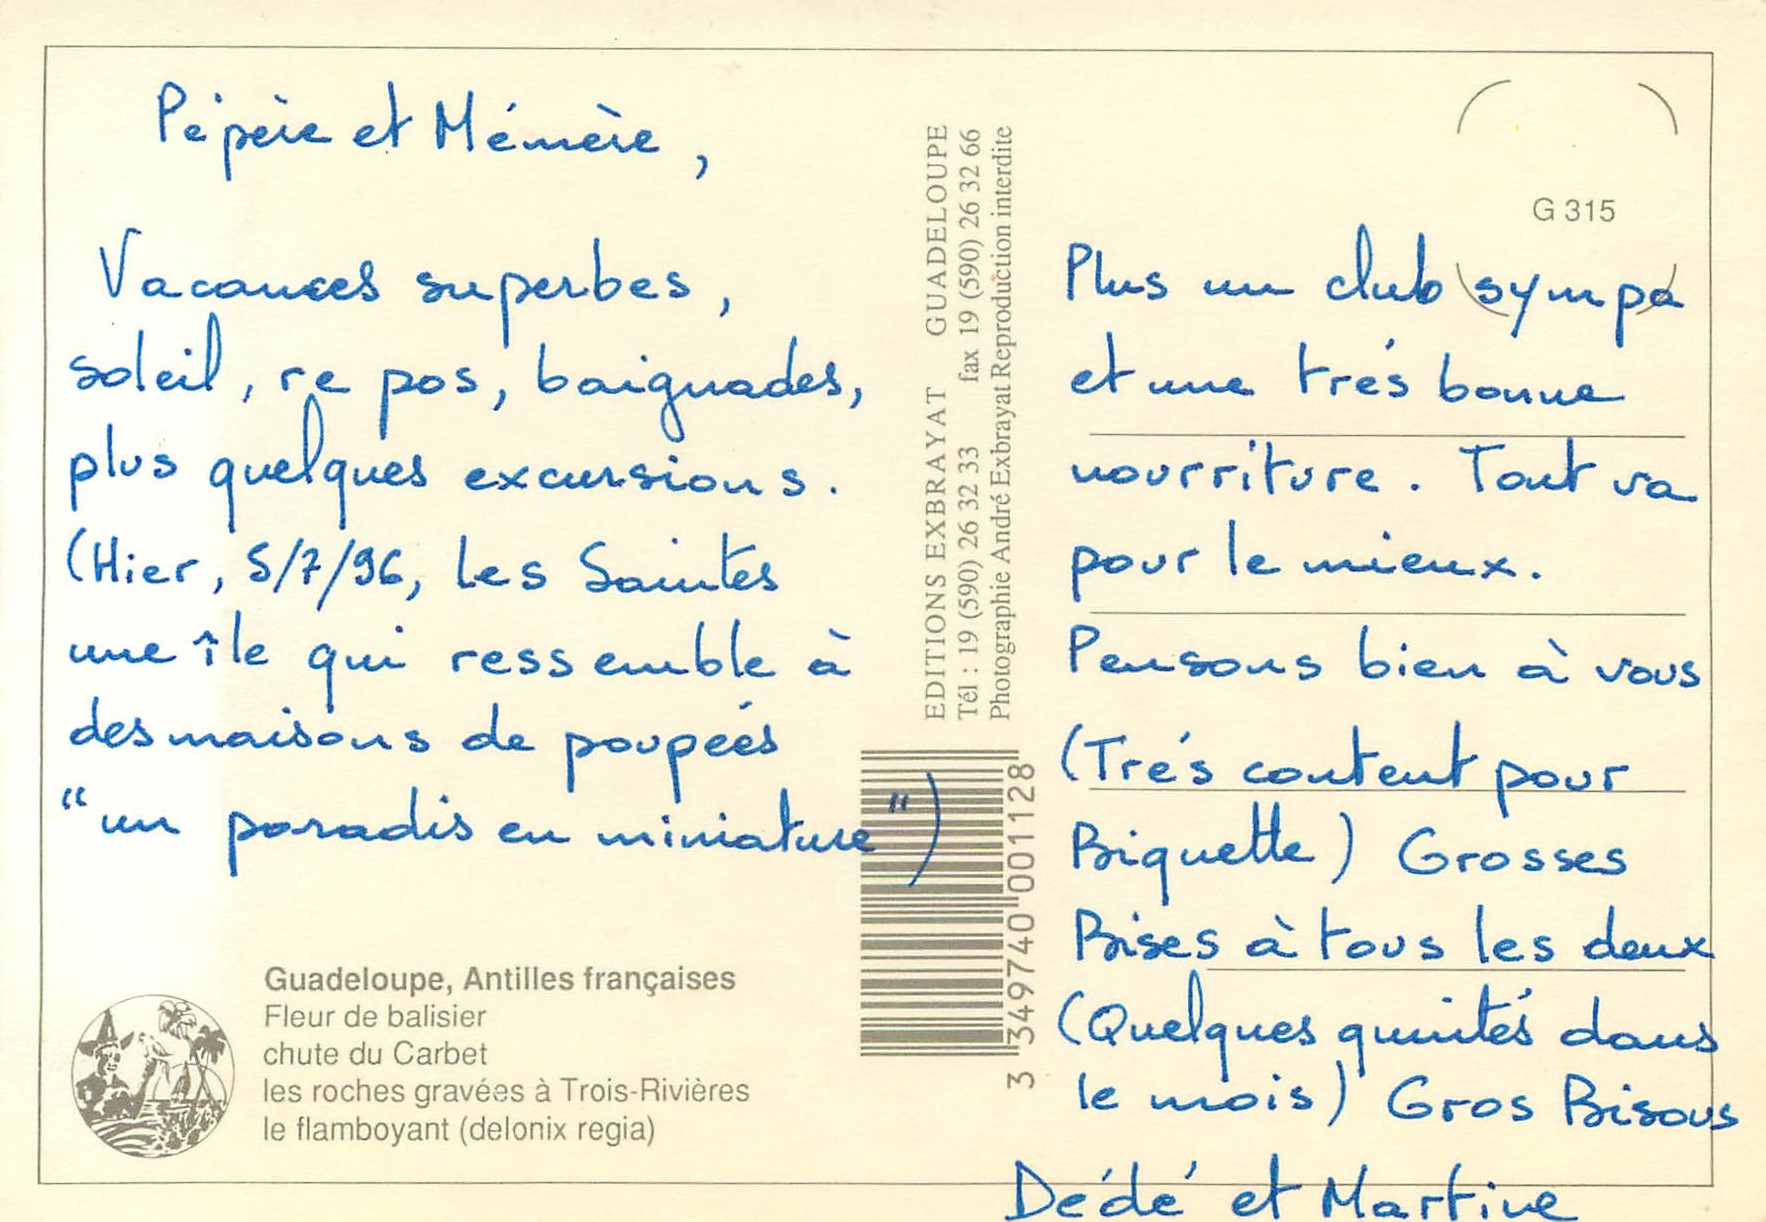 Pépère et Mémère,
Vacances superbes,
soleil, repos, baignades,
plus quelques excursions.
(Hier, 5/7/96, Les Saintes
une île qui ressemble à
des maisons de poupées
"un paradis en miniature")
Guadeloupe, Antilles françaises
Fleur de balisier
chute du Carbet
les roches gravées à Trois-Rivières
le flamboyant (delonix regia)
EDITIONS EXBRAYAT GUADELOUPE
Tél : 19 (590) 26 32 33 fax 19 (590) 26 32 66
Photographie André Exbrayat Reproduction interdite
3 349740 001128
G 315
Plus un club sympa
et une trés bonne
nourriture. Tout va
pour le mieux.
Pensons bien à vous
(Trés content pour
Biquette) Grosses
Bises à tous les deux
(Quelques quintés dans
le mois) Gros Bisous
Dédé et Martine